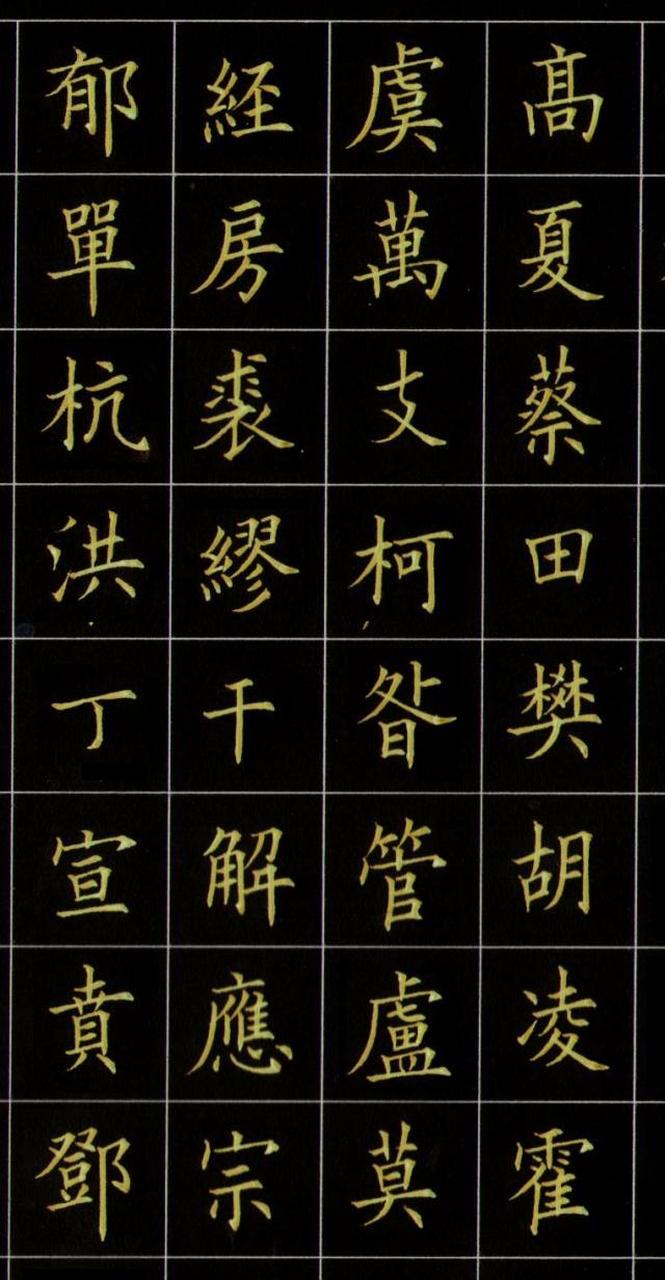 髙夏蔡田樊胡凌霍
虞萬支柯昝管盧莫
経房裘繆干解應宗
郁單杭洪丁宣賁鄧